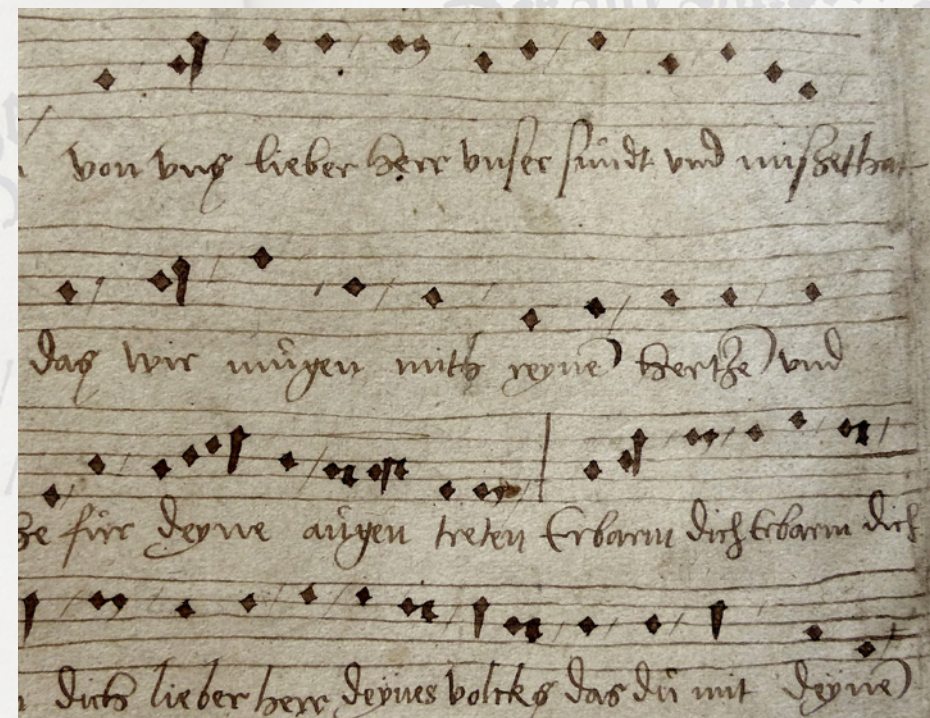 von vns lieber Herr vnser sündt vnd missethat
das wir mügen mith reyne hertze vnd
ze für deyne aügen treten Erbarm dich Erbarm dich
dich lieber herr deynes volcks das dü mit deyne